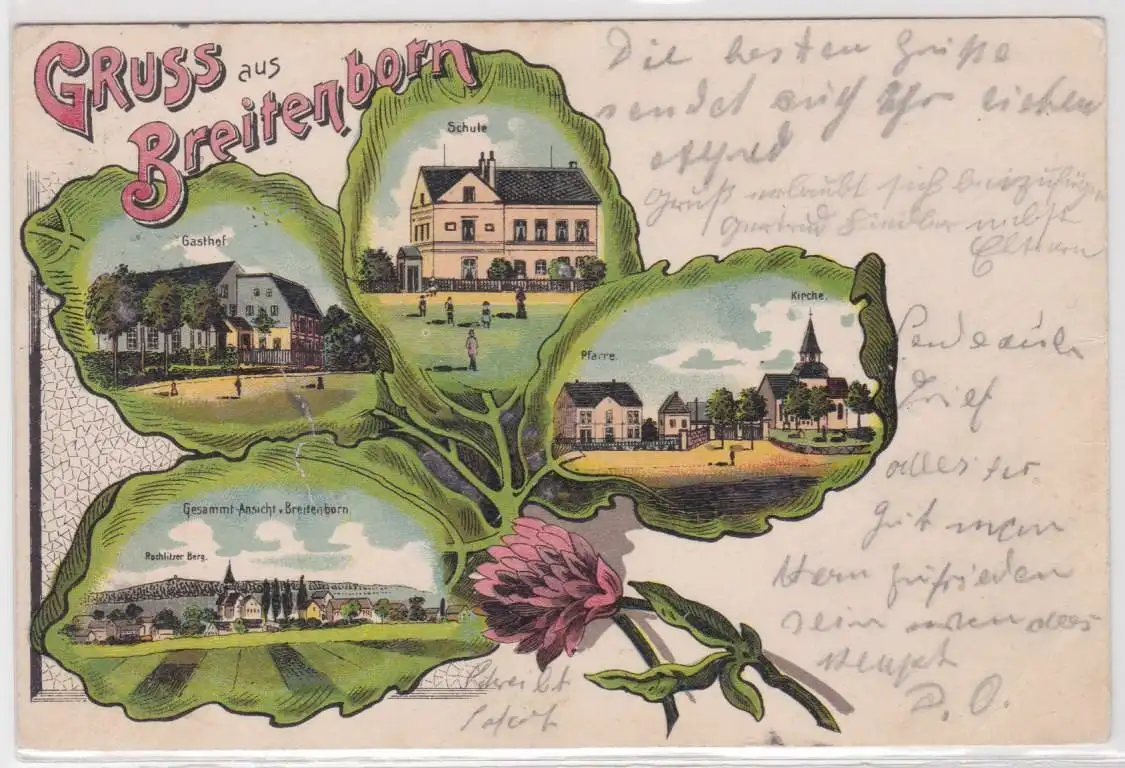 GRUSS aus
Breitenborn
Schule
Gasthof
Kirche.
Pfarre.
Gesammt-Ansicht v. Breitenborn
Rochlitzer Berg.
Die besten Grüße
sendet euch Ihr lieben
Alfred
Gruß erlaubt sich beizufügen
Gertrud nebst
Eltern
Brief
alles
Gut
zufrieden
sein
Schreibt
sofort